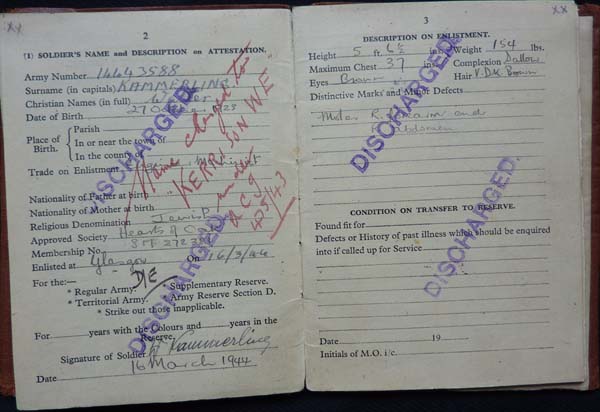 2
(1) SOLDIER'S NAME and DESCRIPTION on ATTESTATION.
Army Number 14443588
Surname (in capitals) KAMMERLING
Christian Names (in full) Walter
Date of Birth 27 1923
Place of Birth. Parish
In or near the town of
In the county of
Trade on Enlistment Engine Machinist
Nationality of Father at birth
Nationality of Mother at birth
Religious Denomination Jewish
Approved Society Hearts of Oak
Membership No.
Enlisted at Glasgow On 16/3/44
For the:—
* Regular Army. Supplementary Reserve.
* Territorial Army. Army Reserve Section D.
* Strike out those inapplicable.
D/E
For years with the Colours and years in the Reserve.
Signature of Soldier W Kammerling
Date 16 March 1944
Name changed to
KERRISON WE
under
DISCHARGED.
DISCHARGED.
DISCHARGED.
3
xx
DESCRIPTION ON ENLISTMENT.
Height 5 ft. 6½ ins. Weight 154 lbs.
Maximum Chest 37 ins. Complexion Sallow
Eyes Brown Hair V. DK Brown
Distinctive Marks and Minor Defects
Moles R. and
CONDITION ON TRANSFER TO RESERVE.
Found fit for
Defects or History of past illness which should be enquired
into if called up for Service
Date 19
Initials of M.O. i/c.
DISCHARGED.
DISCHARGED.
DISCHARGED.